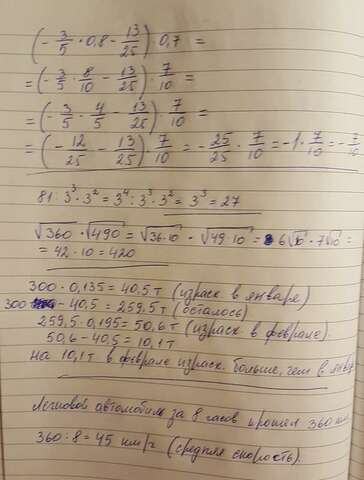 (- 3/5 · 0,8 - 13/25) 0,7 =
= (- 3/5 · 8/10 - 13/25) · 7/10 =
= (- 3/5 · 4/5 - 13/25) · 7/10 =
= (- 12/25 - 13/25) · 7/10 = - 25/25 · 7/10 = -1 · 7/10 = - 7/10
81 : 3³ · 3² = 3⁴ : 3³ · 3² = 3³ = 27
√360 · √490 = √36·10 · √49·10 = 6√10 · 7√10 =
= 42 · 10 = 420
300 · 0,135 = 40,5 т (израсх. в январе)
300 - 40,5 = 259,5 т (осталось)
259,5 · 0,195 = 50,6 т (израсх. в феврале).
50,6 - 40,5 = 10,1 т
На 10,1 т в феврале израсх. больше, чем в
Легковой автомобиль за 8 часов прошел 360 км
360 : 8 = 45 км/ч (средняя скорость).